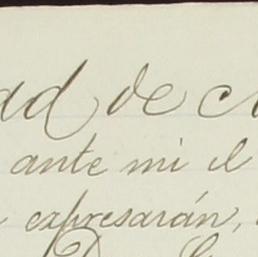 ad de
ante mi el
expresarán,